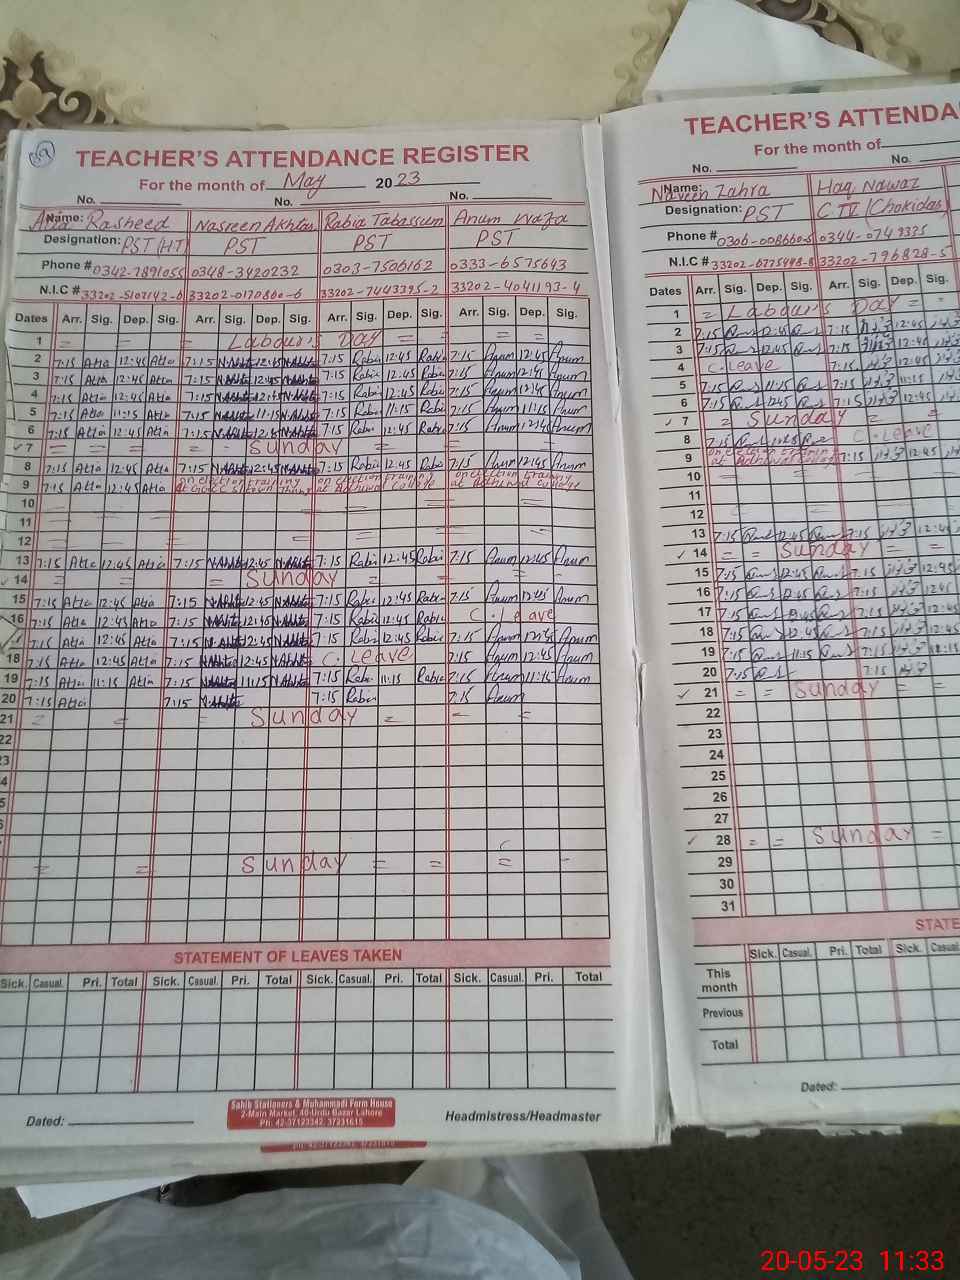 TEACHER'S ATTENDANCE REGISTER
For the month of May 2023
No. No. No.
Name: Atia Rasheed Nasreen Akhtar Rabia Tabassum Anum
Designation: PST (HT) PST PST PST
Phone # 0342-7891055 0348-3420232 0303-7506162 0333-6575643
N.I.C # 33202-5107142-6 33202-0170860-6 33202-7443395-2 33202-4041193-4
Dates Arr. Sig. Dep. Sig. Arr. Sig. Dep. Sig. Arr. Sig. Dep. Sig. Arr. Sig. Dep. Sig.
1 = = Labour's Day = = =
2 7:15 Atia 12:45 Atia 7:15 N.Akhtar 12:45 N.Akhtar 7:15 Rabia 12:45 Rabia 7:15 Anum 12:45 Anum
3 7:15 Atia 12:45 Atia 7:15 N.Akhtar 12:45 N.Akhtar 7:15 Rabia 12:45 Rabia 7:15 Anum 12:45 Anum
4 7:15 Atia 12:45 Atia 7:15 N.Akhtar 12:45 N.Akhtar 7:15 Rabia 12:45 Rabia 7:15 Anum 12:45 Anum
5 7:15 Atia 11:15 Atia 7:15 N.Akhtar 11:15 N.Akhtar 7:15 Rabia 11:15 Rabia 7:15 Anum 11:15 Anum
6 7:15 Atia 12:45 Atia 7:15 N.Akhtar 12:45 N.Akhtar 7:15 Rabia 12:45 Rabia 7:15 Anum 12:45 Anum
7 = = = = Sunday = = =
8 7:15 Atia 12:45 Atia 7:15 N.Akhtar 12:45 N.Akhtar 7:15 Rabia 12:45 Rabia 7:15 Anum 12:45 Anum
9 7:15 Atia 12:45 Atia on election training at on election training at college on election training at college
10
11
12
13 7:15 Atia 12:45 Atia 7:15 N.Akhtar 12:45 N.Akhtar 7:15 Rabia 12:45 Rabia 7:15 Anum 12:45 Anum
14 = = = Sunday = = =
15 7:15 Atia 12:45 Atia 7:15 N.Akhtar 12:45 N.Akhtar 7:15 Rabia 12:45 Rabia 7:15 Anum 12:45 Anum
16 7:15 Atia 12:45 Atia 7:15 N.Akhtar 12:45 N.Akhtar 7:15 Rabia 12:45 Rabia C. Leave
7:15 Atia 12:45 Atia 7:15 N.Akhtar 12:45 N.Akhtar 7:15 Rabia 12:45 Rabia 7:15 Anum 12:45 Anum
18 7:15 Atia 12:45 Atia 7:15 N.Akhtar 12:45 N.Akhtar C. Leave 7:15 Anum 12:45 Anum
19 7:15 Atia 11:15 Atia 7:15 N.Akhtar 11:15 N.Akhtar 7:15 Rabia 11:15 Rabia 7:15 Anum 11:15 Anum
20 7:15 Atia 7:15 N.Akhtar 7:15 Rabia 7:15 Anum
21 = = = Sunday = = =
22
= = Sunday = = = -
STATEMENT OF LEAVES TAKEN
Sick. Casual. Pri. Total Sick. Casual. Pri. Total Sick. Casual. Pri. Total Sick. Casual. Pri. Total
Dated:
Sahib Stationers & Muhammadi Form House
2-Main Market, 40-Urdu Bazar Lahore
Ph: 42-37123342, 37231615
Headmistress/Headmaster
TEACHER'S ATTENDA
For the month of
No. No.
Name: Naveen Zahra Haq Nawaz
Designation: PST C TV (Chokidar)
Phone # 0306-0086605 0344-0749325
N.I.C # 33202-6775498-8 33202-796828-5
Dates Arr. Sig. Dep. Sig. Arr. Sig. Dep. Sig.
1 = Labour's Day = =
2 7:15 12:45 7:15 12:45
3 7:15 12:45 7:15 12:45
4 C. Leave 7:15 12:45
5 7:15 11:15 7:15 11:15
6 7:15 12:45 7:15 12:45
7 = Sunday = =
8 7:15 12:45 C. Leave
9 on election training at college 7:15 12:45
10
11
12
13 7:15 12:45 7:15 12:45
14 = = Sunday = =
15 7:15 12:45 7:15 12:45
16 7:15 12:45 7:15 12:45
17 7:15 12:45 7:15 12:45
18 7:15 12:45 7:15 12:45
19 7:15 11:15 7:15
20 7:15 7:15
21 = = Sunday = =
22
23
24
25
26
27
28 = = Sunday =
29
30
31
STATE
Sick. Casual. Pri. Total Sick. Casual.
This month
Previous
Total
Dated:
20-05-23 11:33